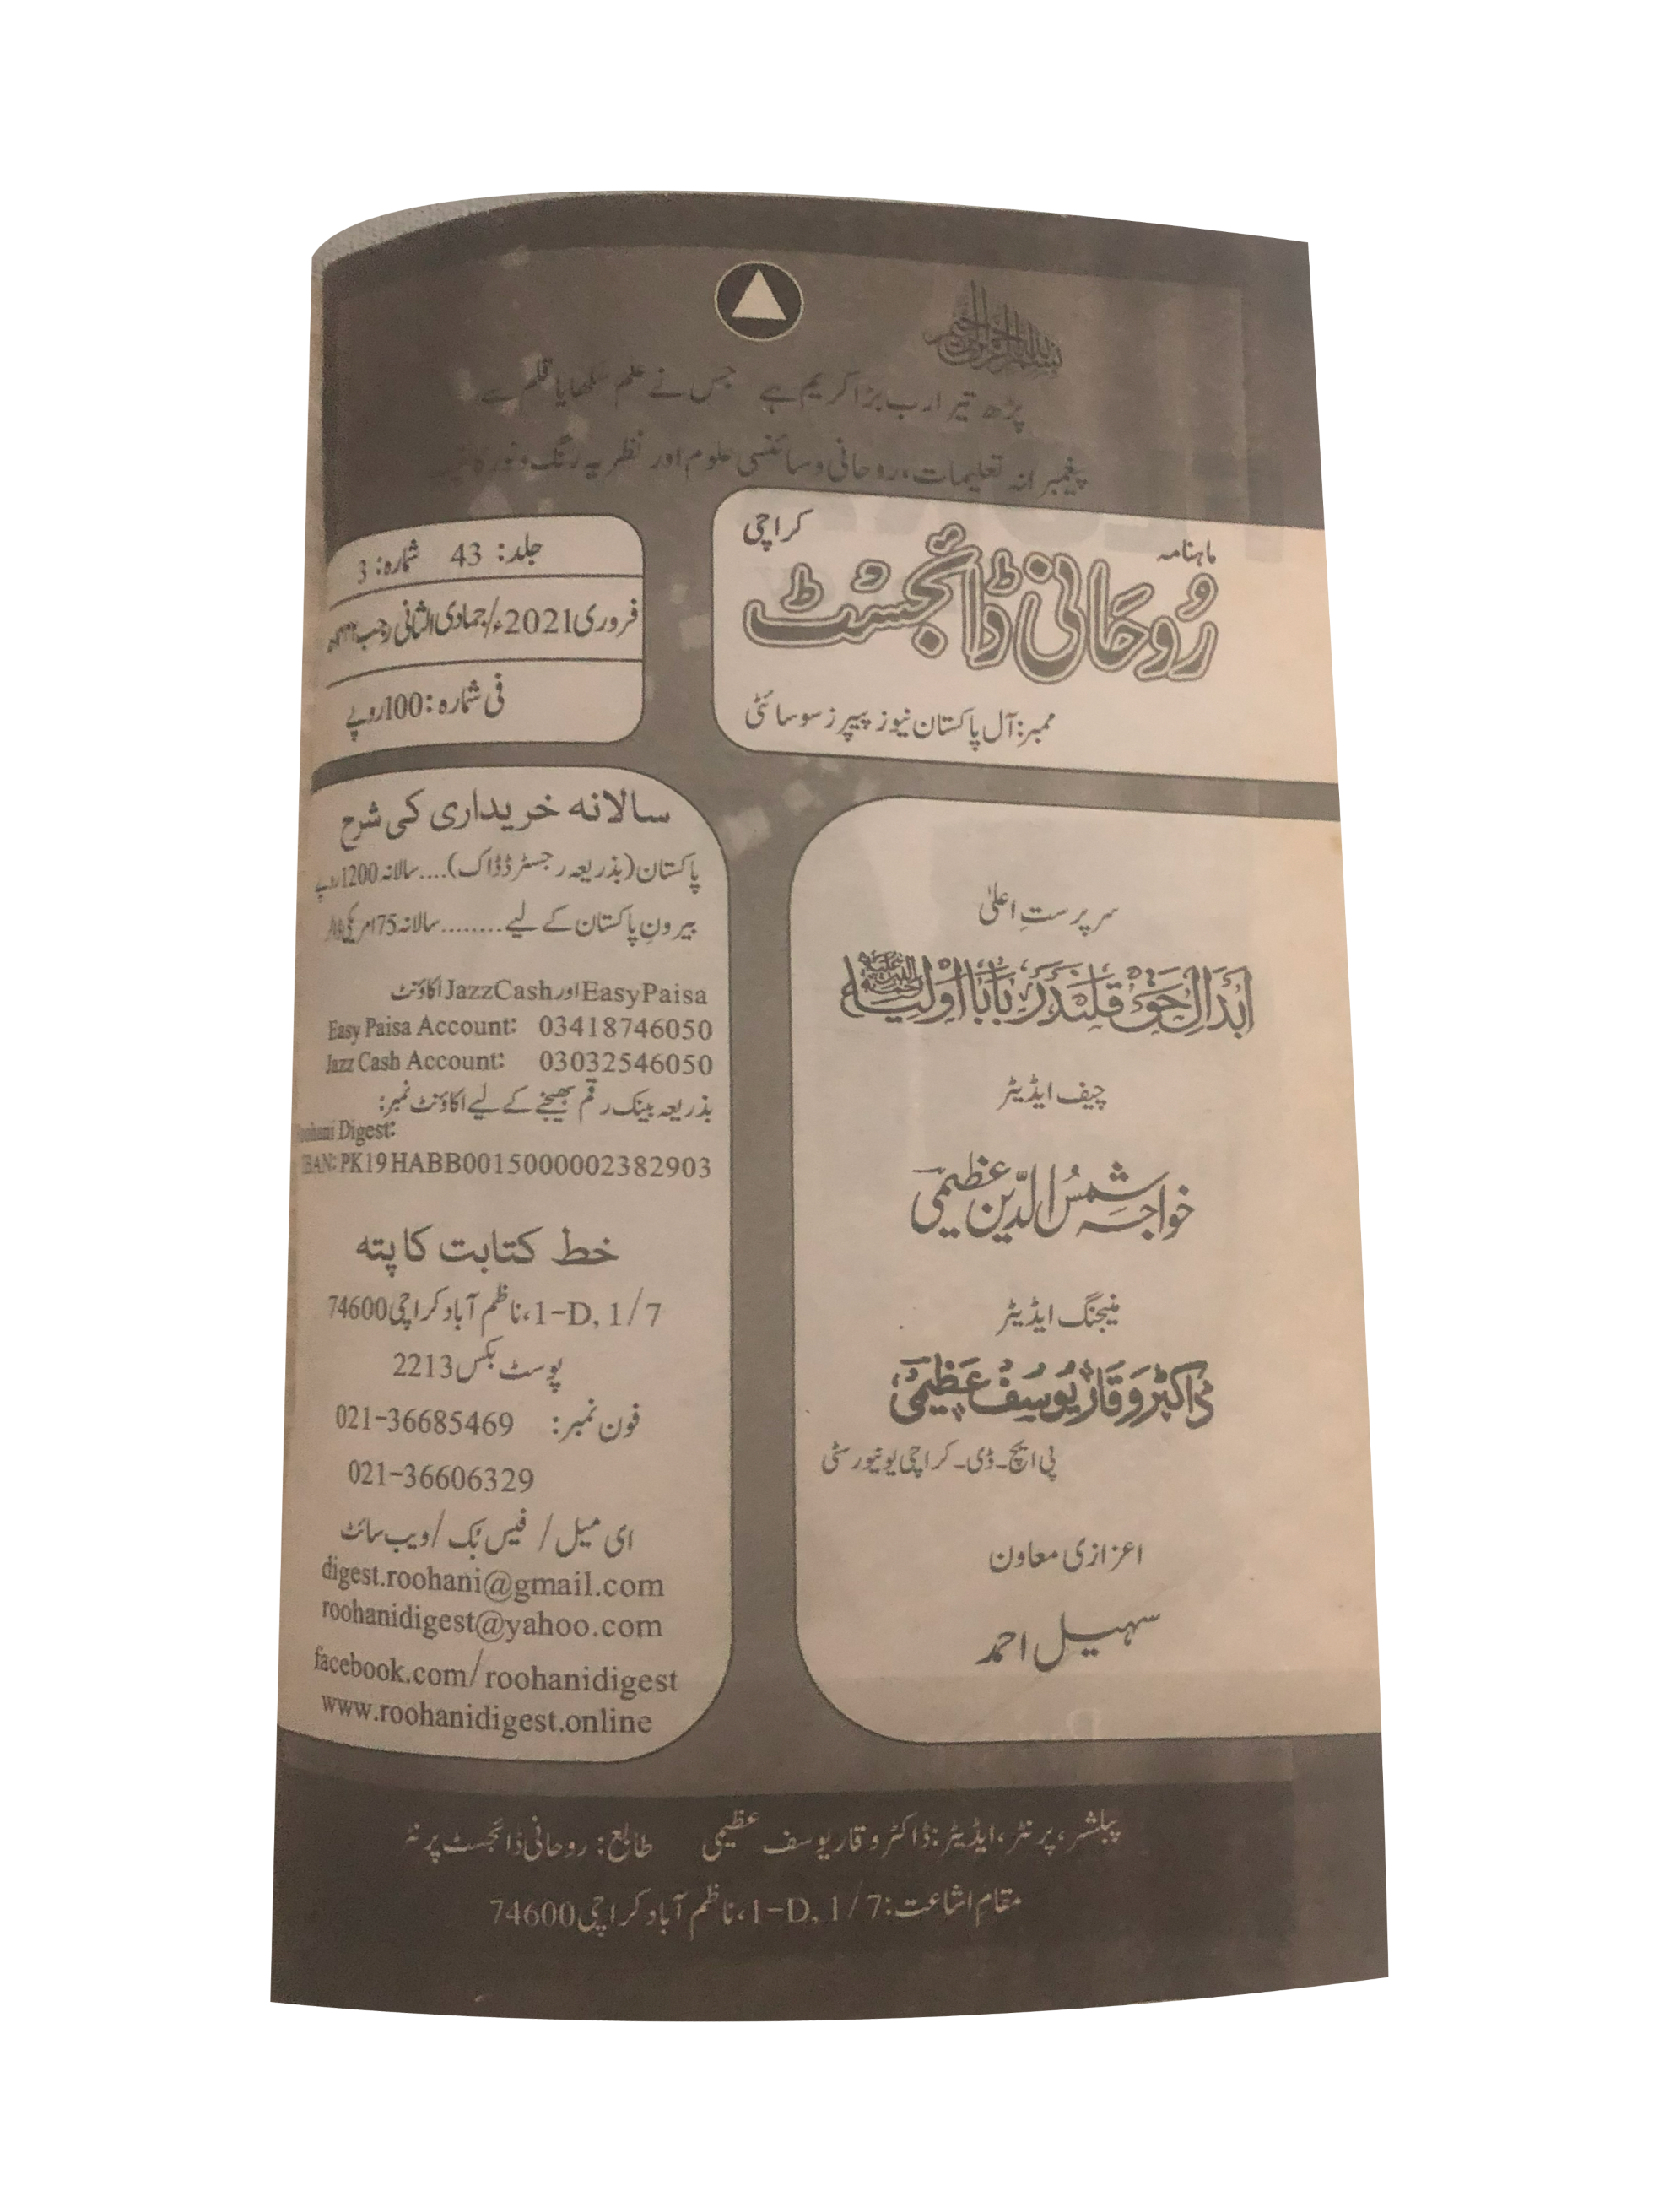 بسم اللہ الرحمن الرحیم
پڑھ تیرا رب بڑا کریم ہے جس نے علم سکھایا قلم سے
پیغمبرانہ تعلیمات، روحانی و سائنسی علوم اور نظریہ رنگ و نور کا
ماہنامہ
کراچی
رُوحانی ڈائجسٹ
ممبر: آل پاکستان نیوز پیپرز سوسائٹی
جلد: 43 شمارہ: 3
فروری 2021ء/جمادی الثانی رجب
فی شمارہ: 100 روپے
سرپرستِ اعلیٰ
ابدالِ حق قلندر بابا اولیاء
چیف ایڈیٹر
خواجہ شمسُ الدّین عظیمی
منیجنگ ایڈیٹر
ڈاکٹر وقار یوسف عظیمی
پی ایچ۔ڈی۔ کراچی یونیورسٹی
اعزازی معاون
سہیل احمد
سالانہ خریداری کی شرح
پاکستان (بذریعہ رجسٹرڈ ڈاک).... سالانہ 1200 روپے
بیرونِ پاکستان کے لیے........ سالانہ 75 امریکی
EasyPaisa اور JazzCash اکاؤنٹ
Easy Paisa Account: 03418746050
Jazz Cash Account: 03032546050
بذریعہ بینک رقم بھیجنے کے لیے اکاؤنٹ نمبر:
Roohani Digest:
IBAN: PK19HABB0015000002382903
خط کتابت کا پتہ
1-D, 1/7، ناظم آباد کراچی 74600
پوسٹ بکس 2213
فون نمبر: 021-36685469
021-36606329
ای میل / فیس بُک / ویب سائٹ
digest.roohani@gmail.com
roohanidigest@yahoo.com
facebook.com/roohanidigest
www.roohanidigest.online
پبلشر، پرنٹر، ایڈیٹر: ڈاکٹر وقار یوسف عظیمی طابع: روحانی ڈائجسٹ پرنٹر
مقامِ اشاعت: 1-D, 1/7، ناظم آباد کراچی 74600